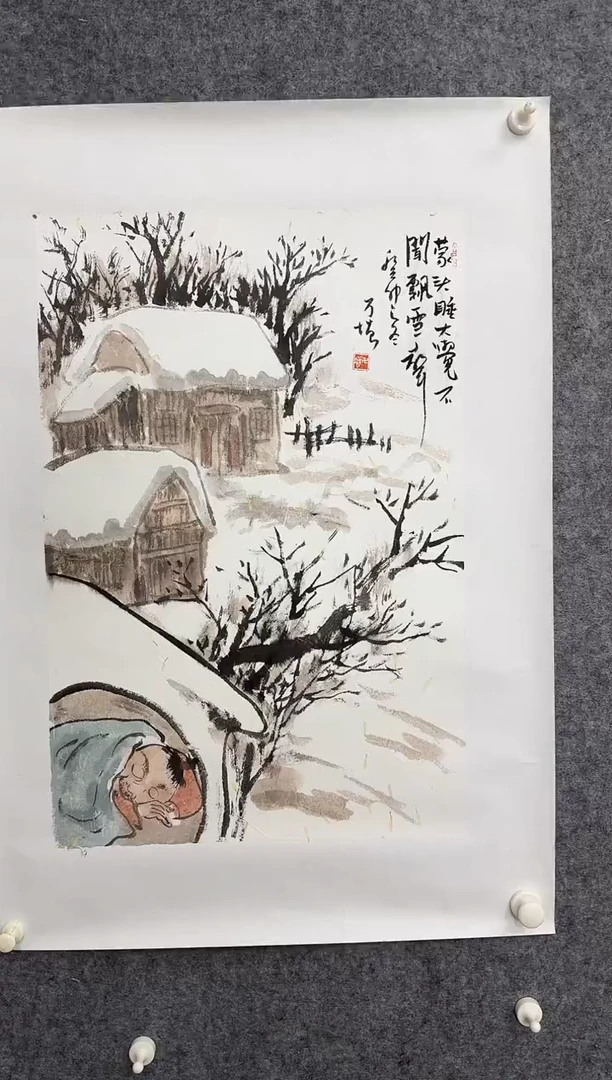 蒙头睡大觉不
闻飘雪声
癸卯之冬